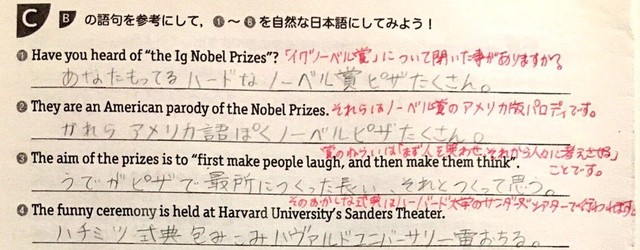 C B の語句を参考にして，❶～❻を自然な日本語にしてみよう！
❶ Have you heard of “the Ig Nobel Prizes”? 「イグノーベル賞」について聞いた事がありますか?
あなたもってる ハードな ノーベル賞 ピザ たくさん。
❷ They are an American parody of the Nobel Prizes. それらはノーベル賞のアメリカ版パロディです。
かれら アメリカ語 ぽく ノーベルピザ たくさん。
❸ The aim of the prizes is to “first make people laugh, and then make them think”. 賞のねらいは「まず人を笑わせ、それから人々に考えさせる」ことです。
うでがピザで 最所につくった長い、それとつくって思う。
❹ The funny ceremony is held at Harvard University’s Sanders Theater. そのおかしな式典はハーバード大学のサンダーズシアターで行われます。
ハチミツ 式典 包みこみ ハヴァルドユニバーサリー 雷おちる。